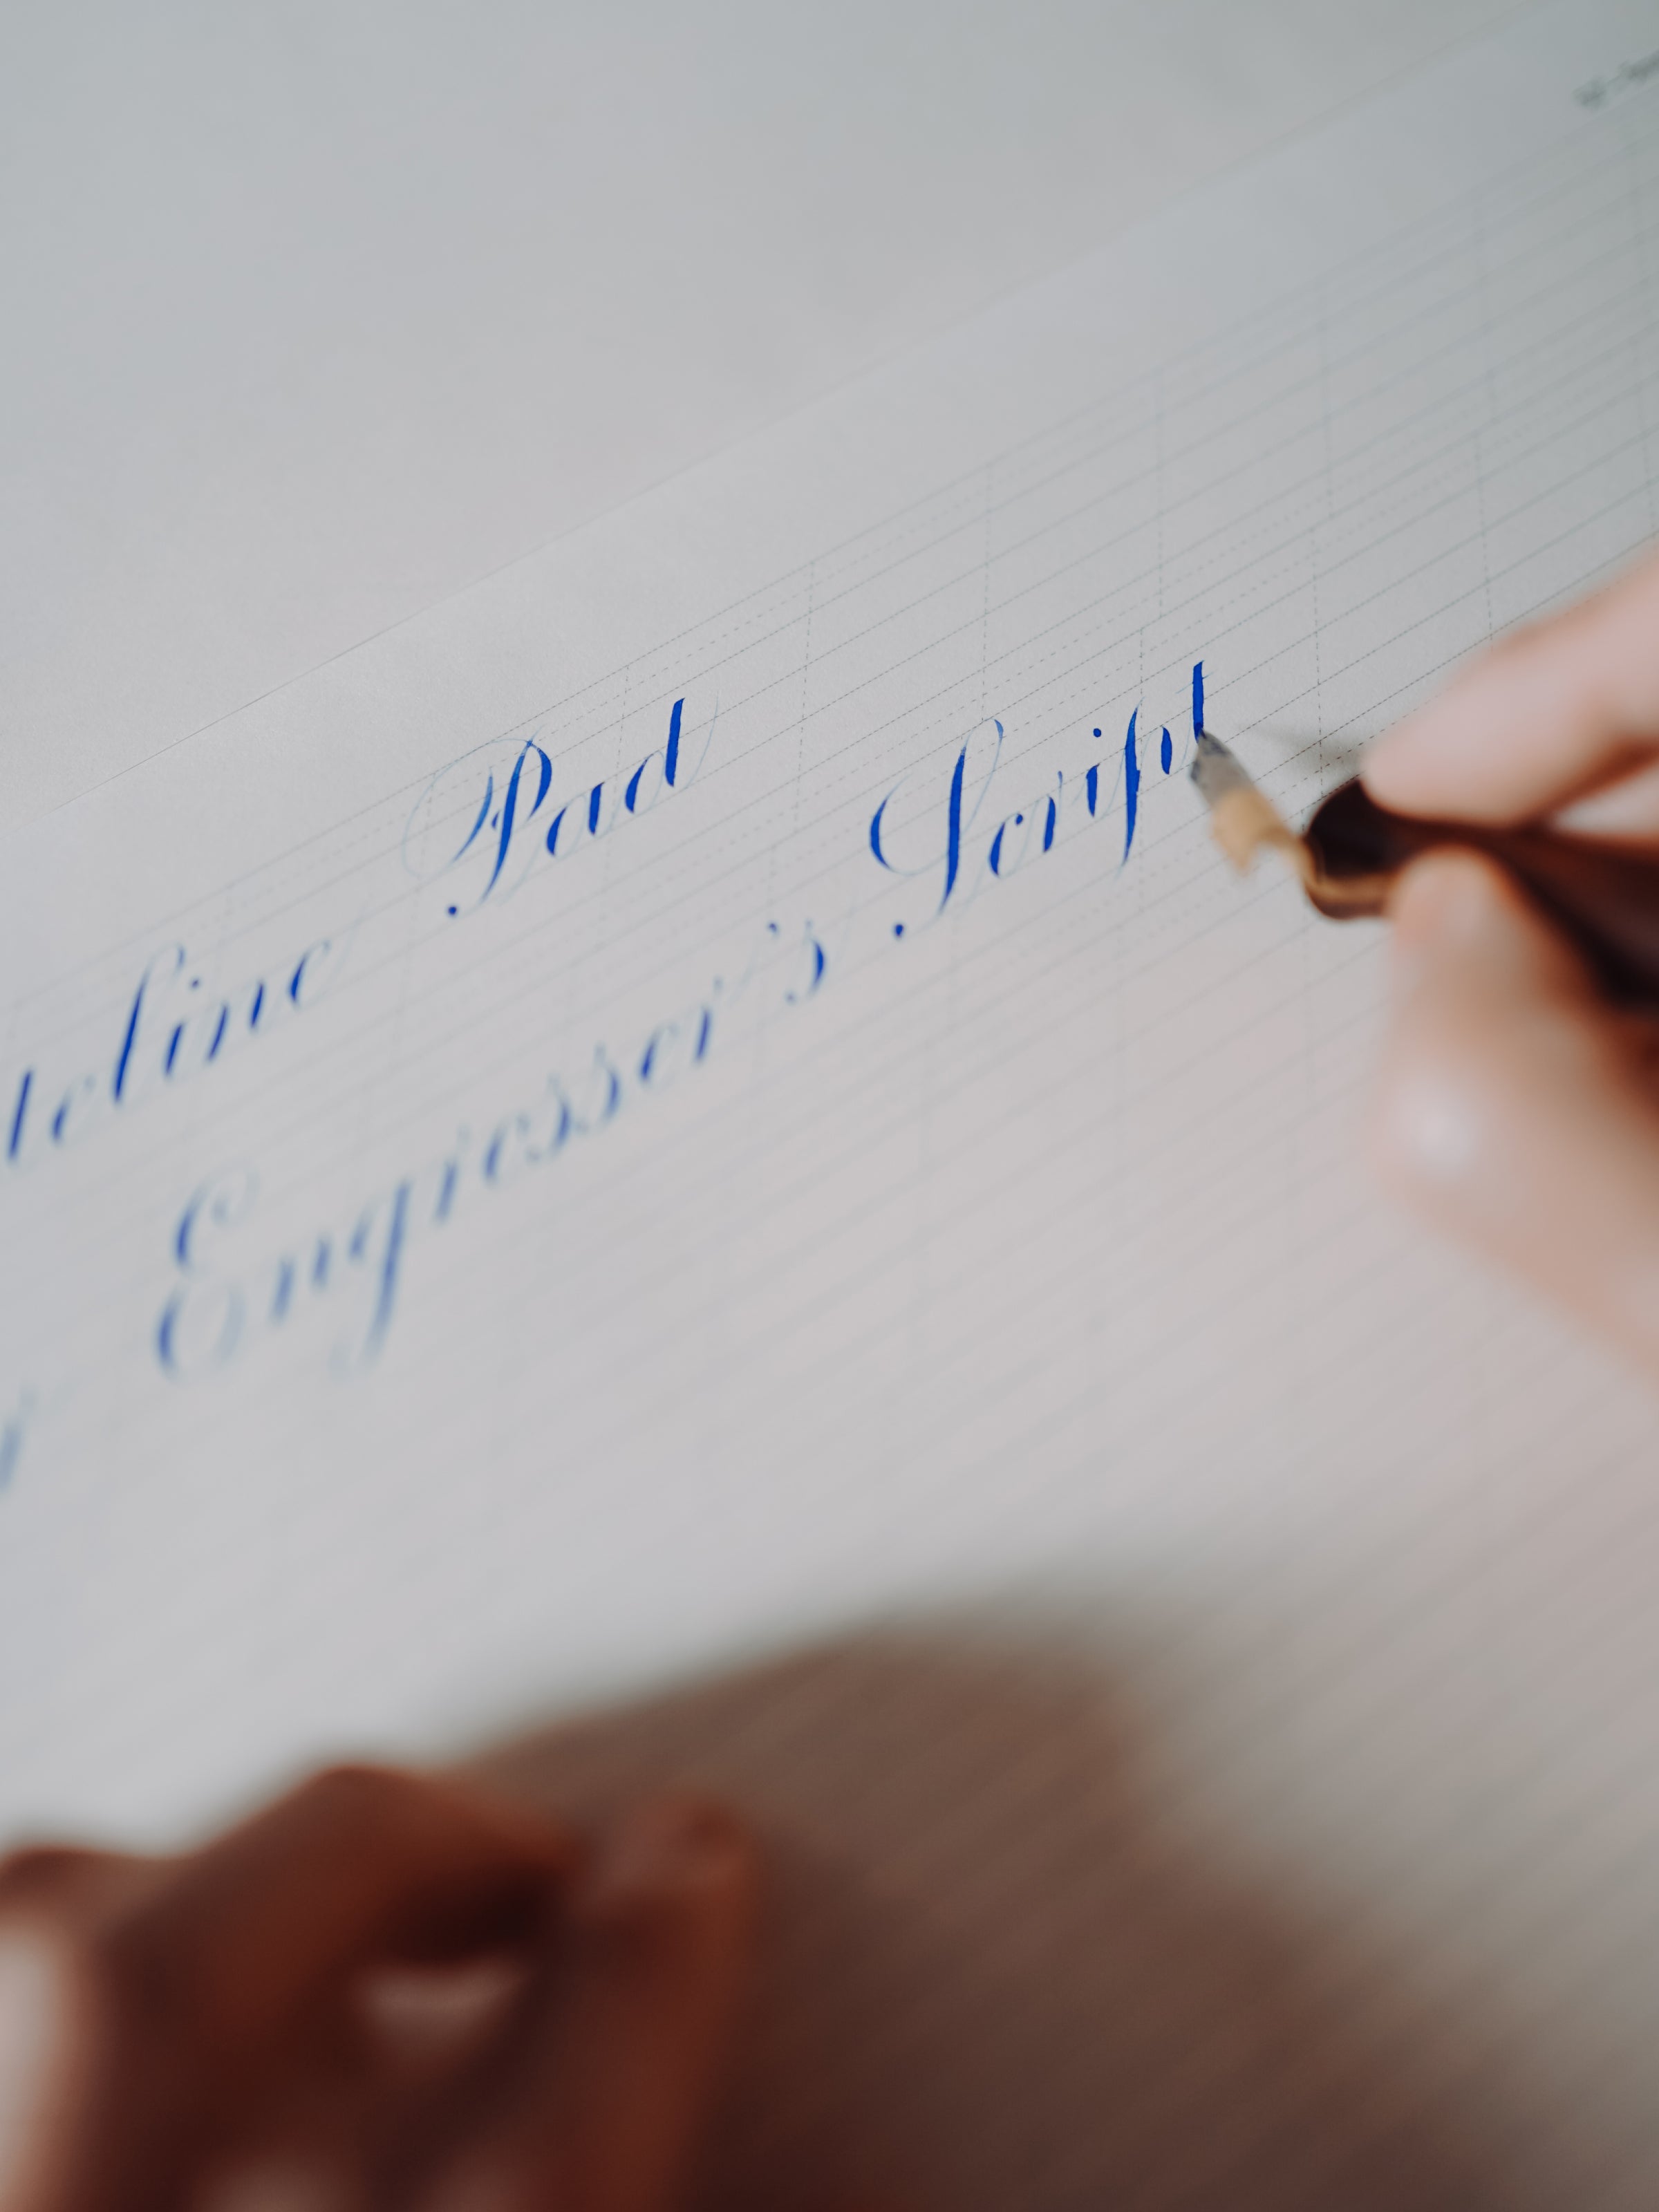 deline Pad
r Engrosser's Script